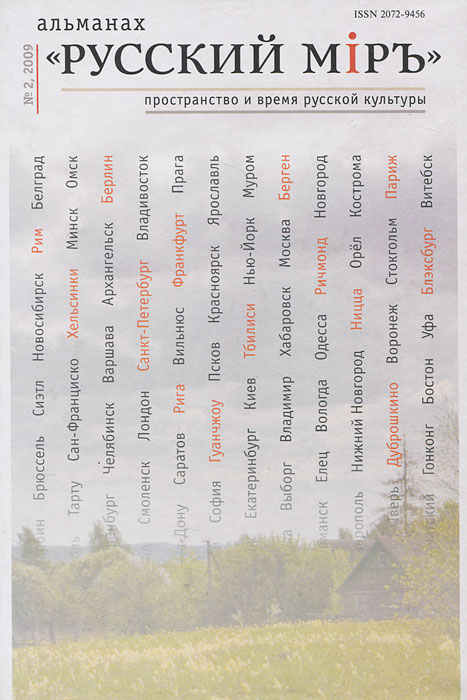 ISSN 2072-9456
альманах
«РУССКИЙ МiРЪ»
№ 2, 2009
пространство и время русской культуры
Брюссель Сиэтл Новосибирск Рим Белград
Тарту Сан-Франциско Хельсинки Минск Омск
Челябинск Варшава Архангельск Берлин
Смоленск Лондон Санкт-Петербург Владивосток
Дону Саратов Рига Вильнюс Франкфурт Прага
София Гуанчжоу Псков Красноярск Ярославль
Екатеринбург Киев Тбилиси Нью-Йорк Муром
Выборг Владимир Хабаровск Москва Берген
Елец Вологда Одесса Ричмонд Новгород
Нижний Новгород Ницца Орёл Кострома
Тверь Дуброшкино Воронеж Стокгольм Париж
Гонконг Бостон Уфа Блэксбург Витебск